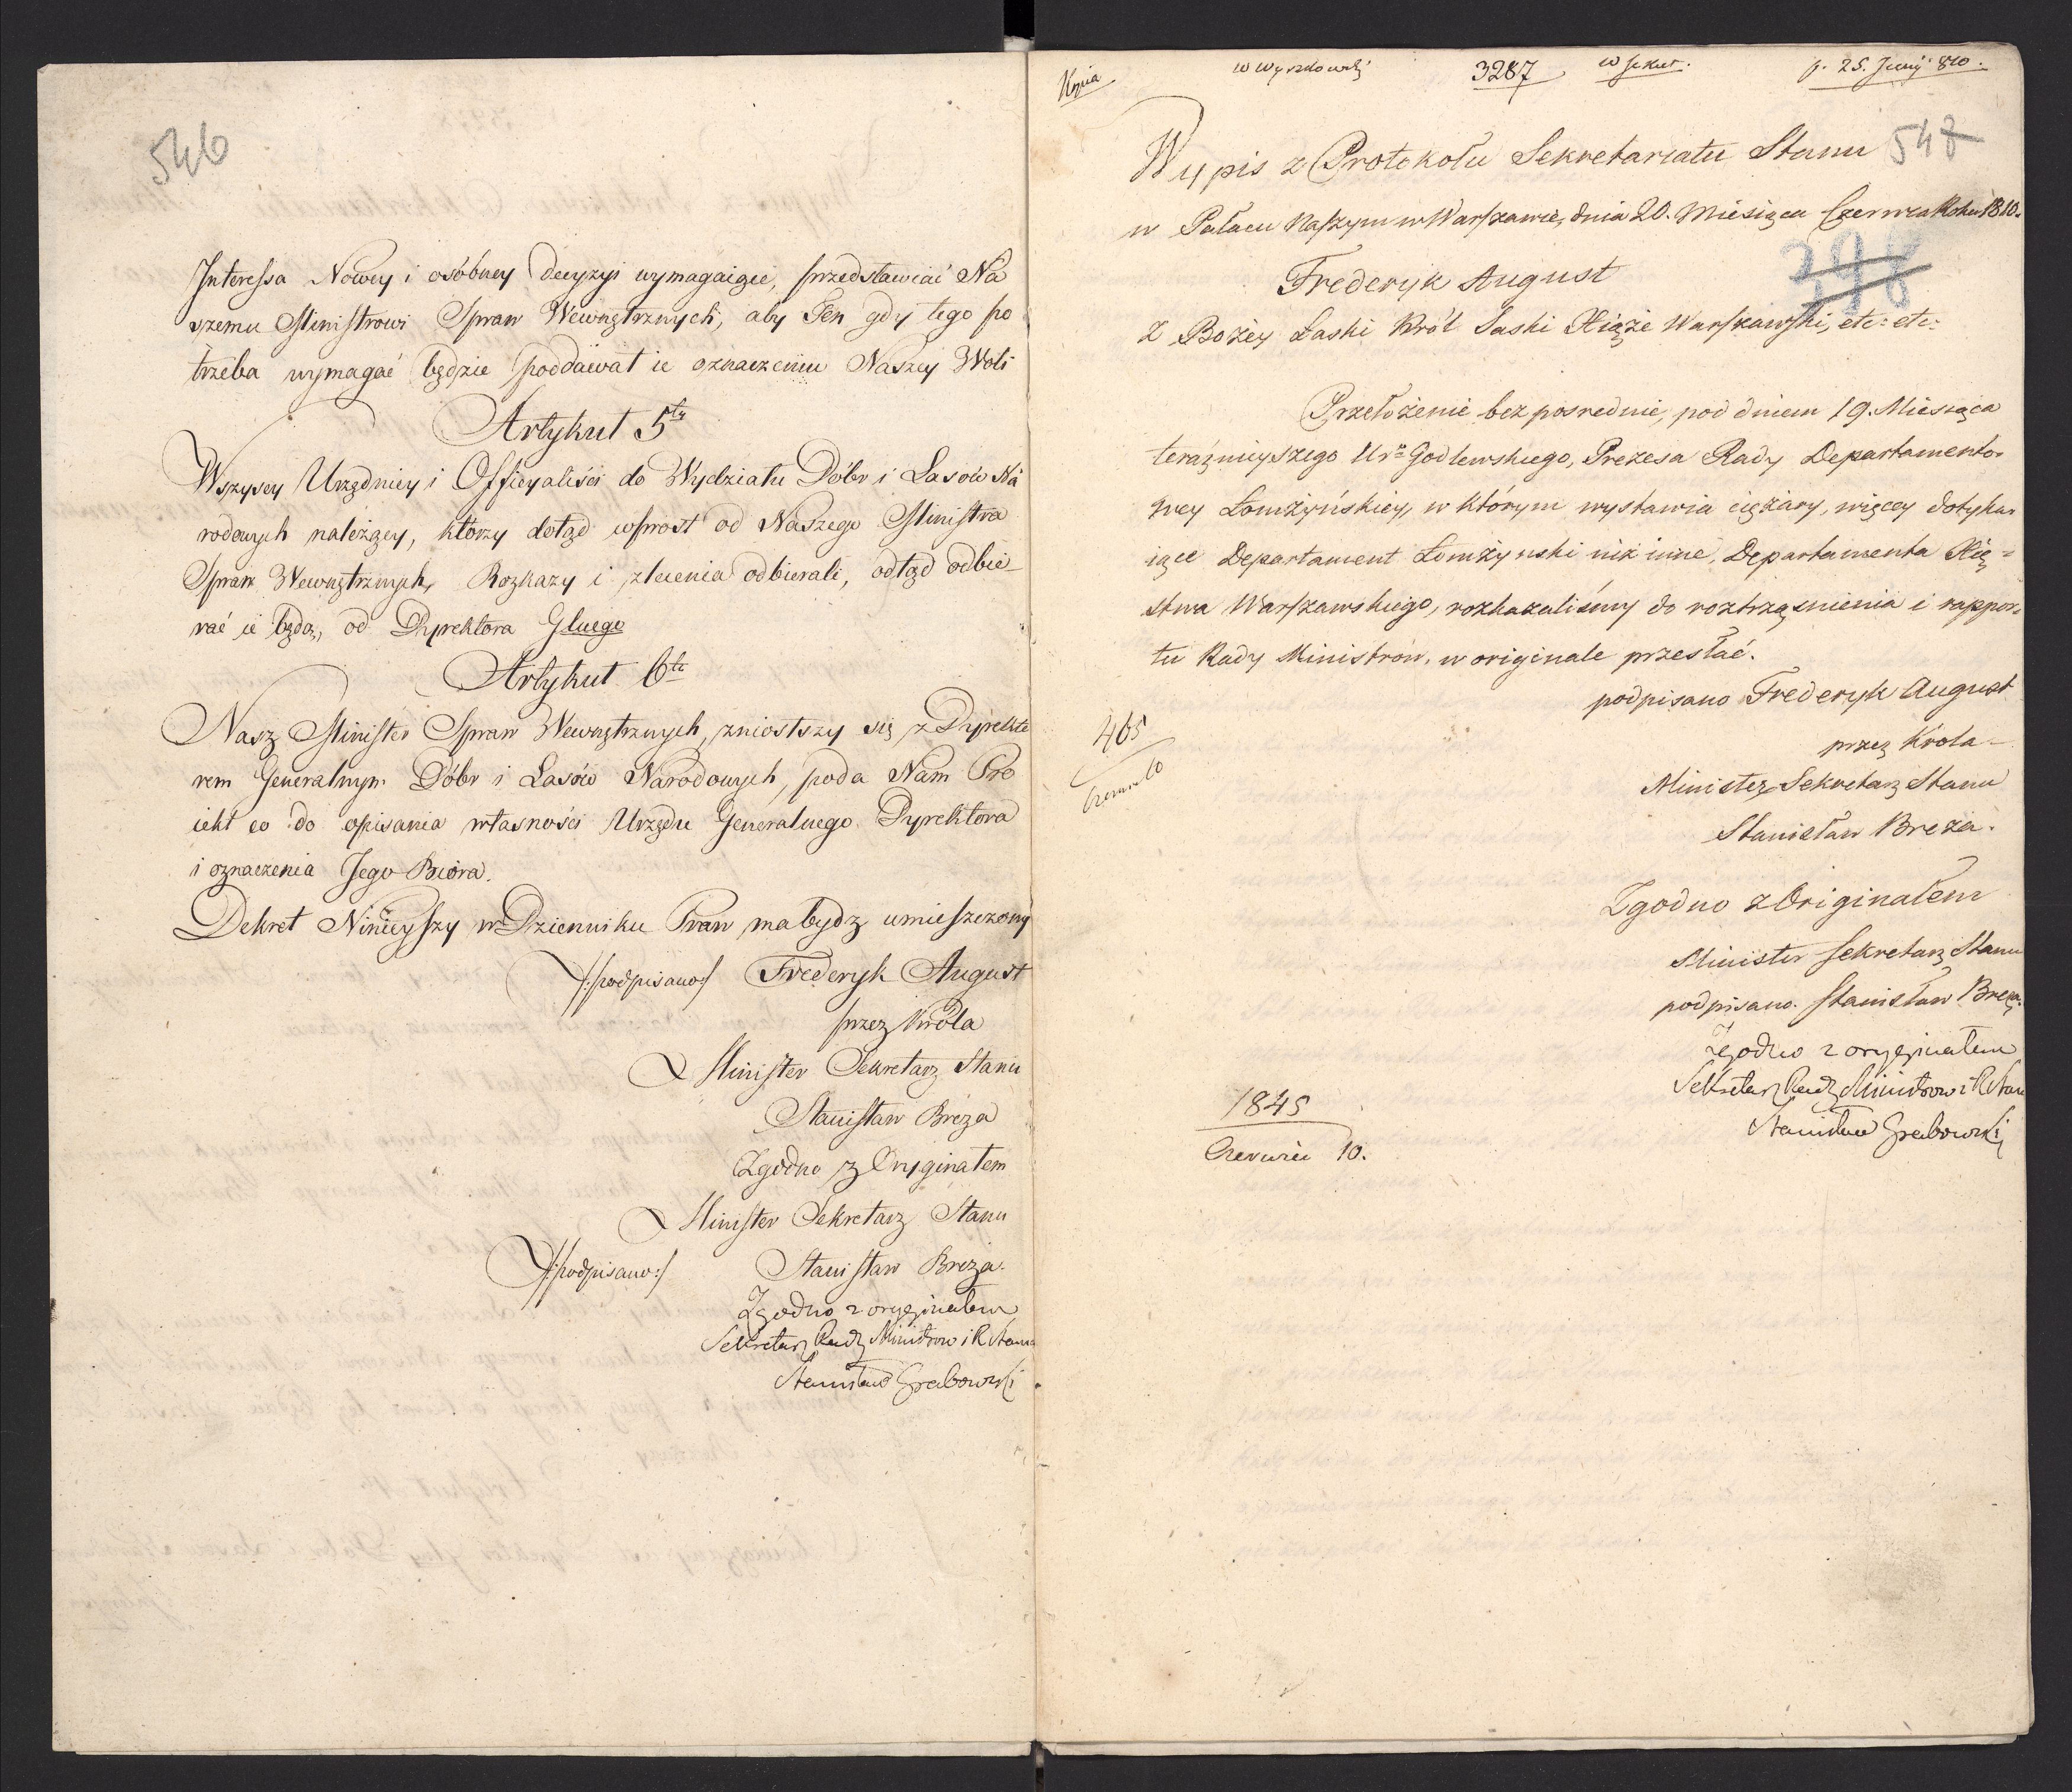 546
Interessa Nowey i osóbney decyzyi wymagaiące, przedstawiać Na
szemu Ministrowi Spraw Wewnętrznych, aby Ten gdy tego po
trzeba wymagać będzie poddawał ie oznaczeniu Naszey Woli
Artykuł 5ty
Wszyscy Urzędnicy i Officyaliści do Wydziału Dóbr i Lasów Na
rodowych należący, którzy dotąd wprost od Naszego Ministra
Spraw Wewnętrznych, Rozkazy i zlecenia odbierali, odtąd odbie
rać ie będą, od Dyrektora Glnego
Artykuł 6ty
Nasz Minister Spraw Wewnętrznych, zniosłszy się z Dyrekto
rem Generalnym Dóbr i Lasów Narodowych, poda Nam Pro
iekt co do opisania własności Urzędu Generalnego Dyrektora
i oznaczenia Jego Biora.
Dekret Ninieyszy w Dzienniku Praw ma bydz umieszczony
/:podpisano:/ Frederyk August
przez Króla
Minister Sekretarz Stanu
Stanisław Breza
Zgodno z Oryginałem
Minister Sekretarz Stanu
/:podpisano:/ Stanisław Breza.
Zgodno z oryginałem
Sekretarz Rady Ministrow i R Stanu
Stanisław Grabowski
Kopia
3287
w sekret.
p. 25. Junij 810.
Wypis z Protokołu Sekretariatu Stanu
547
w Pałacu Naszym w Warszawie, dnia 20. Miesiąca Czerwca Roku 1810.
Frederyk August
Z Bożey Łaski Król Saski Xiąże Warszawski, etc: etc:
Przełożenie bezpośrednie, pod dniem 19. Miesiąca
teraźnieyszego Uro Godlewskiego, Prezesa Rady Departamento-
wey Łomżyńskiey, w którym wystawia ciężary, więcey dotyka-
iące Departament Łomżyński niż inne, Departamenta Xię=
stwa Warszawskiego, rozkazaliśmy do roztrząśnienia i rappor-
tu Rady Ministrów, w originale przesłać.
podpisano Frederyk August
przez Króla
Minister Sekretarz Stanu
Stanisław Breza.
465
Czerwca 10
Zgodno z Originałem
Minister Sekretarz Stanu
podpisano. Stanisław Breza.
Zgodno z oryginałem
Sekretarz Rady Ministrow i R Stanu
Stanisław Grabowski
1845
Czerwiec 10.